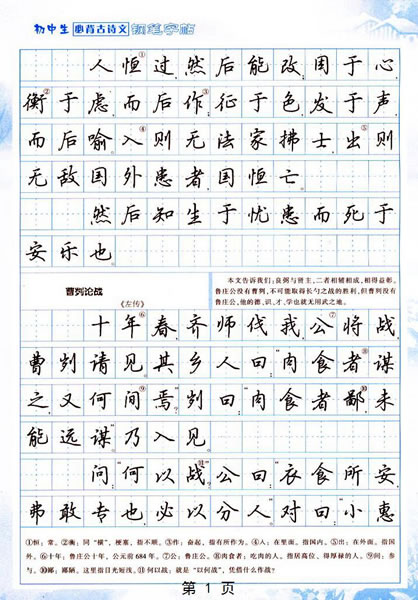 初中生 必背古诗文 钢笔字帖
人恒①过,然后能改,困于心,
衡②于虑,而后作③;征于色,发于声,
而后喻。入④则无法家拂士,出⑤则
无敌国外患者,国恒亡。
然后知生于忧患,而死于
安乐也。
曹刿论战
《左传》
本文告诉我们:良弼与贤主,二者相辅相成,相得益彰。
鲁庄公没有曹刿,不可能取得长勺之战的胜利,但曹刿没有
鲁庄公,他的德、识、才、学也就无用武之地。
十年⑥春,齐师伐我。公⑦将战,
曹刿请见。其乡人曰:“肉食者⑧谋
之,又何间⑨焉?”刿曰:“肉食者鄙⑩,未
能远谋。”乃入见。
问:“何以战⑪?”公曰:“衣食所安,
弗敢专也,必以分人。”对曰:“小惠
①恒:常。②衡:同“横”,梗塞,指不顺。③作:奋起,指有所作为。④入:在里面。指国内。⑤出:在外面。指国
外。⑥十年:鲁庄公十年。公元前684年。⑦公:鲁庄公。⑧肉食者:吃肉的人。指居高位、得厚禄的人。⑨间:参
与。⑩鄙:鄙陋。这里指目光短浅。⑪何以战:就是“以何战”,凭借什么作战?
第 1 页